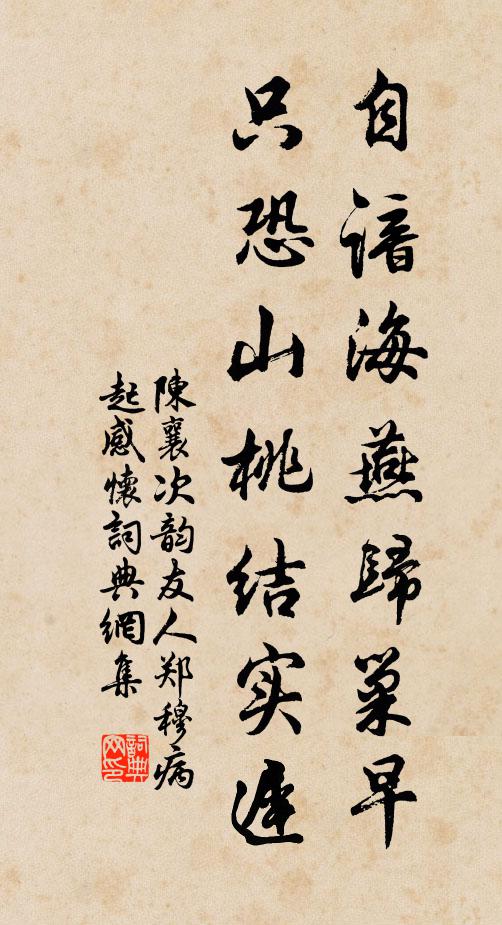 自谙海燕歸巢早
只恐山桃结实遲
陳襄次韵友人郑穆病
起感懷詞典網集
詞典网印